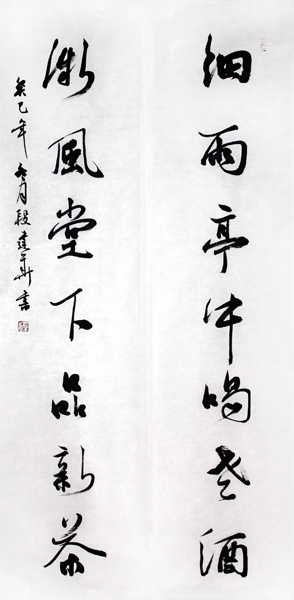 細雨亭中喝老酒
微風堂下品新茶
癸巳年冬月段建華書